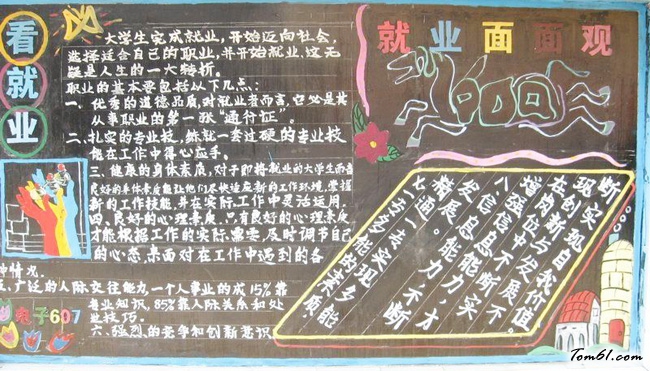 看就业
大学生完成就业，开始迈向社会，
选择适合自己的职业，并开始就业，这无
疑是人生的一大转折。
职业的基本要包括从下几点：
一、优秀的道德品质，对就业者而言，它必是其
从事职业的第一张“通行证”。
二、扎实的专业技，然就一套过硬的专业技
能在工作中得心应手。
三、健康的身体素质，对于即将就业的大学生而言
良好的身体素质能让他们尽快适应新的工作环境，掌握
新的工作技能，并在实际工作中灵活运用。
四、良好的心理素质，只有良好的心理素质
才能根据工作的实际需要，及时调节自己
的心态，来面对在工作中遇到的各
种情况。
五、广泛的人际交往能力，一个人事业的成15%靠
专业知识，85%靠人际关系和处
业技巧。
六、强烈的竞争和创新意识
电子607
就业面面观
断
现实现自我价值，
在创新与发展。
增岗位中不断
八、强信息
发信息能力，实
释展能力，才
七、通一专实现多能
Tom61.com